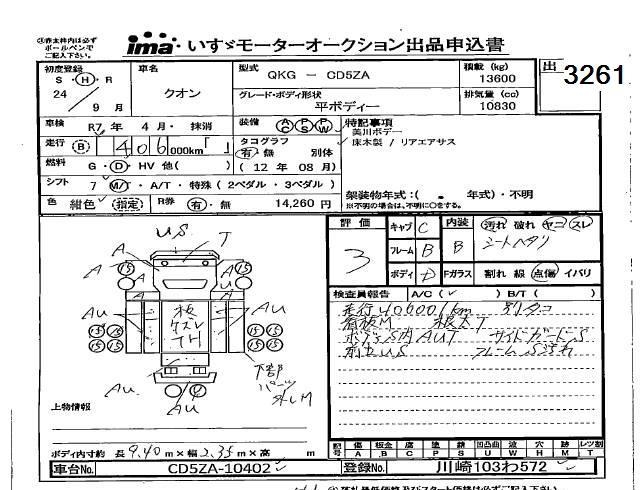 ※赤太枠内は必ず
ボールペンで
ご記入下さい。
ima・いすゞモーターオークション出品申込書
初度登録 S・H・R 24/9月
車名 クオン
型式 QKG － CD5ZA
グレード・ボディ形状 平ボディー
積載(kg) 13600
排気量(cc) 10830
出 3261
車検 R7年 4月・抹消
装備 AC PS PW
特記事項
美川ボデー
床木製 / リアエアサス
走行 B 406,000km「 」
タコグラフ 有・無 別体
燃料 G・D・HV 他( )
(12年08月)
シフト 7 M/T・A/T・特殊(2ペダル・3ペダル)
色 紺色 (指定) R券 有・無 14,260円
架装物年式：( . 年式)・不明
※不明の場合は、不明に○をする。
評価 3
キャブ C
フレーム B
ボディ D
内装 B
汚れ 破れ ヤニ スレ
シートヘタリ
Fガラス 割れ 線 点傷 イバリ
検査員報告 A/C( ) B/T( )
走行406001km 別タコ
看板M 板大T
ボデーS内AUT サイドガードS
前廻US フレームS汚れ
US T
A A A
15 15
U
AU AU
板
クスレ
TH
15 15 15 15
15 15 15 15
AU AU
下部
パーツ
外しM
上物情報
ボディ内寸約 長 9.40 m×幅 2.35 m×高 m
記号 傷 A 板金 B 腐 C 塗 P 錆 S 凹凸曲 U 波 W 穴 H 跡 M レツ割 T
車台No. CD5ZA-10402
登録No. 川崎103わ572